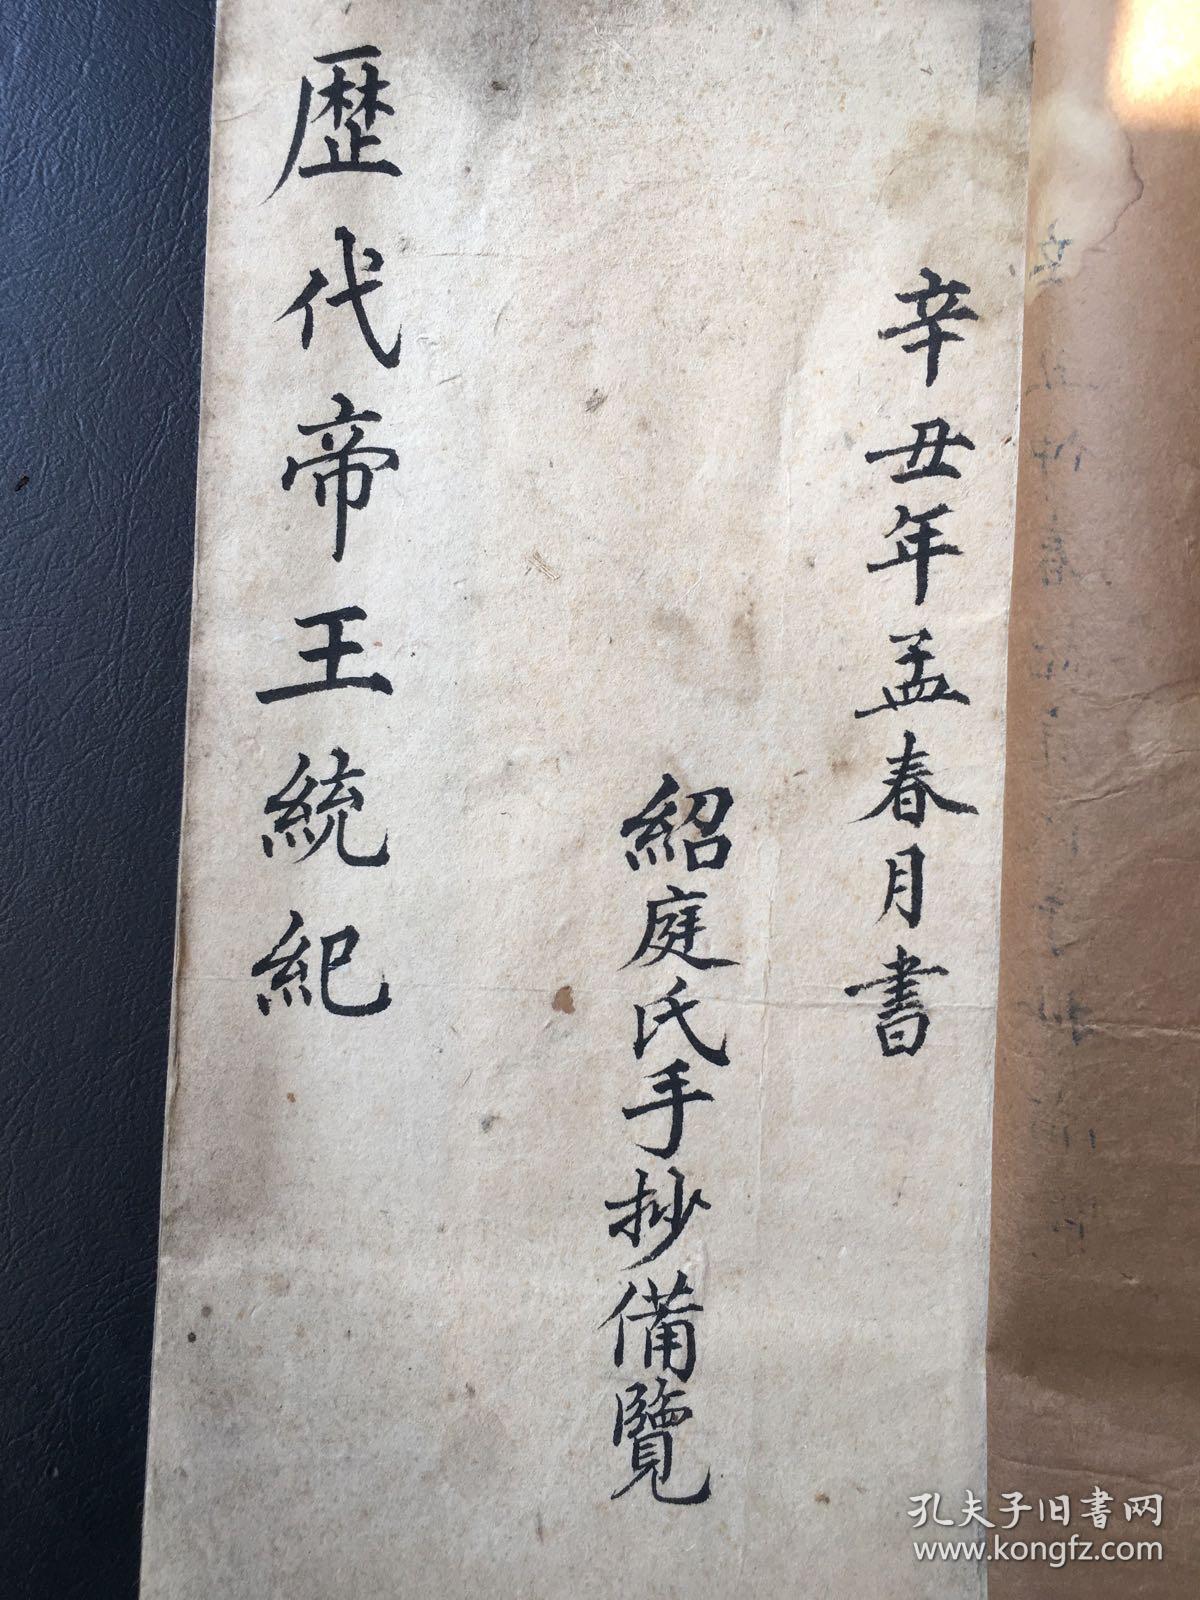 辛丑年孟春月書
紹庭氏手抄備覽
歴代帝王統紀
孔夫子旧書网
www.kongfz.com